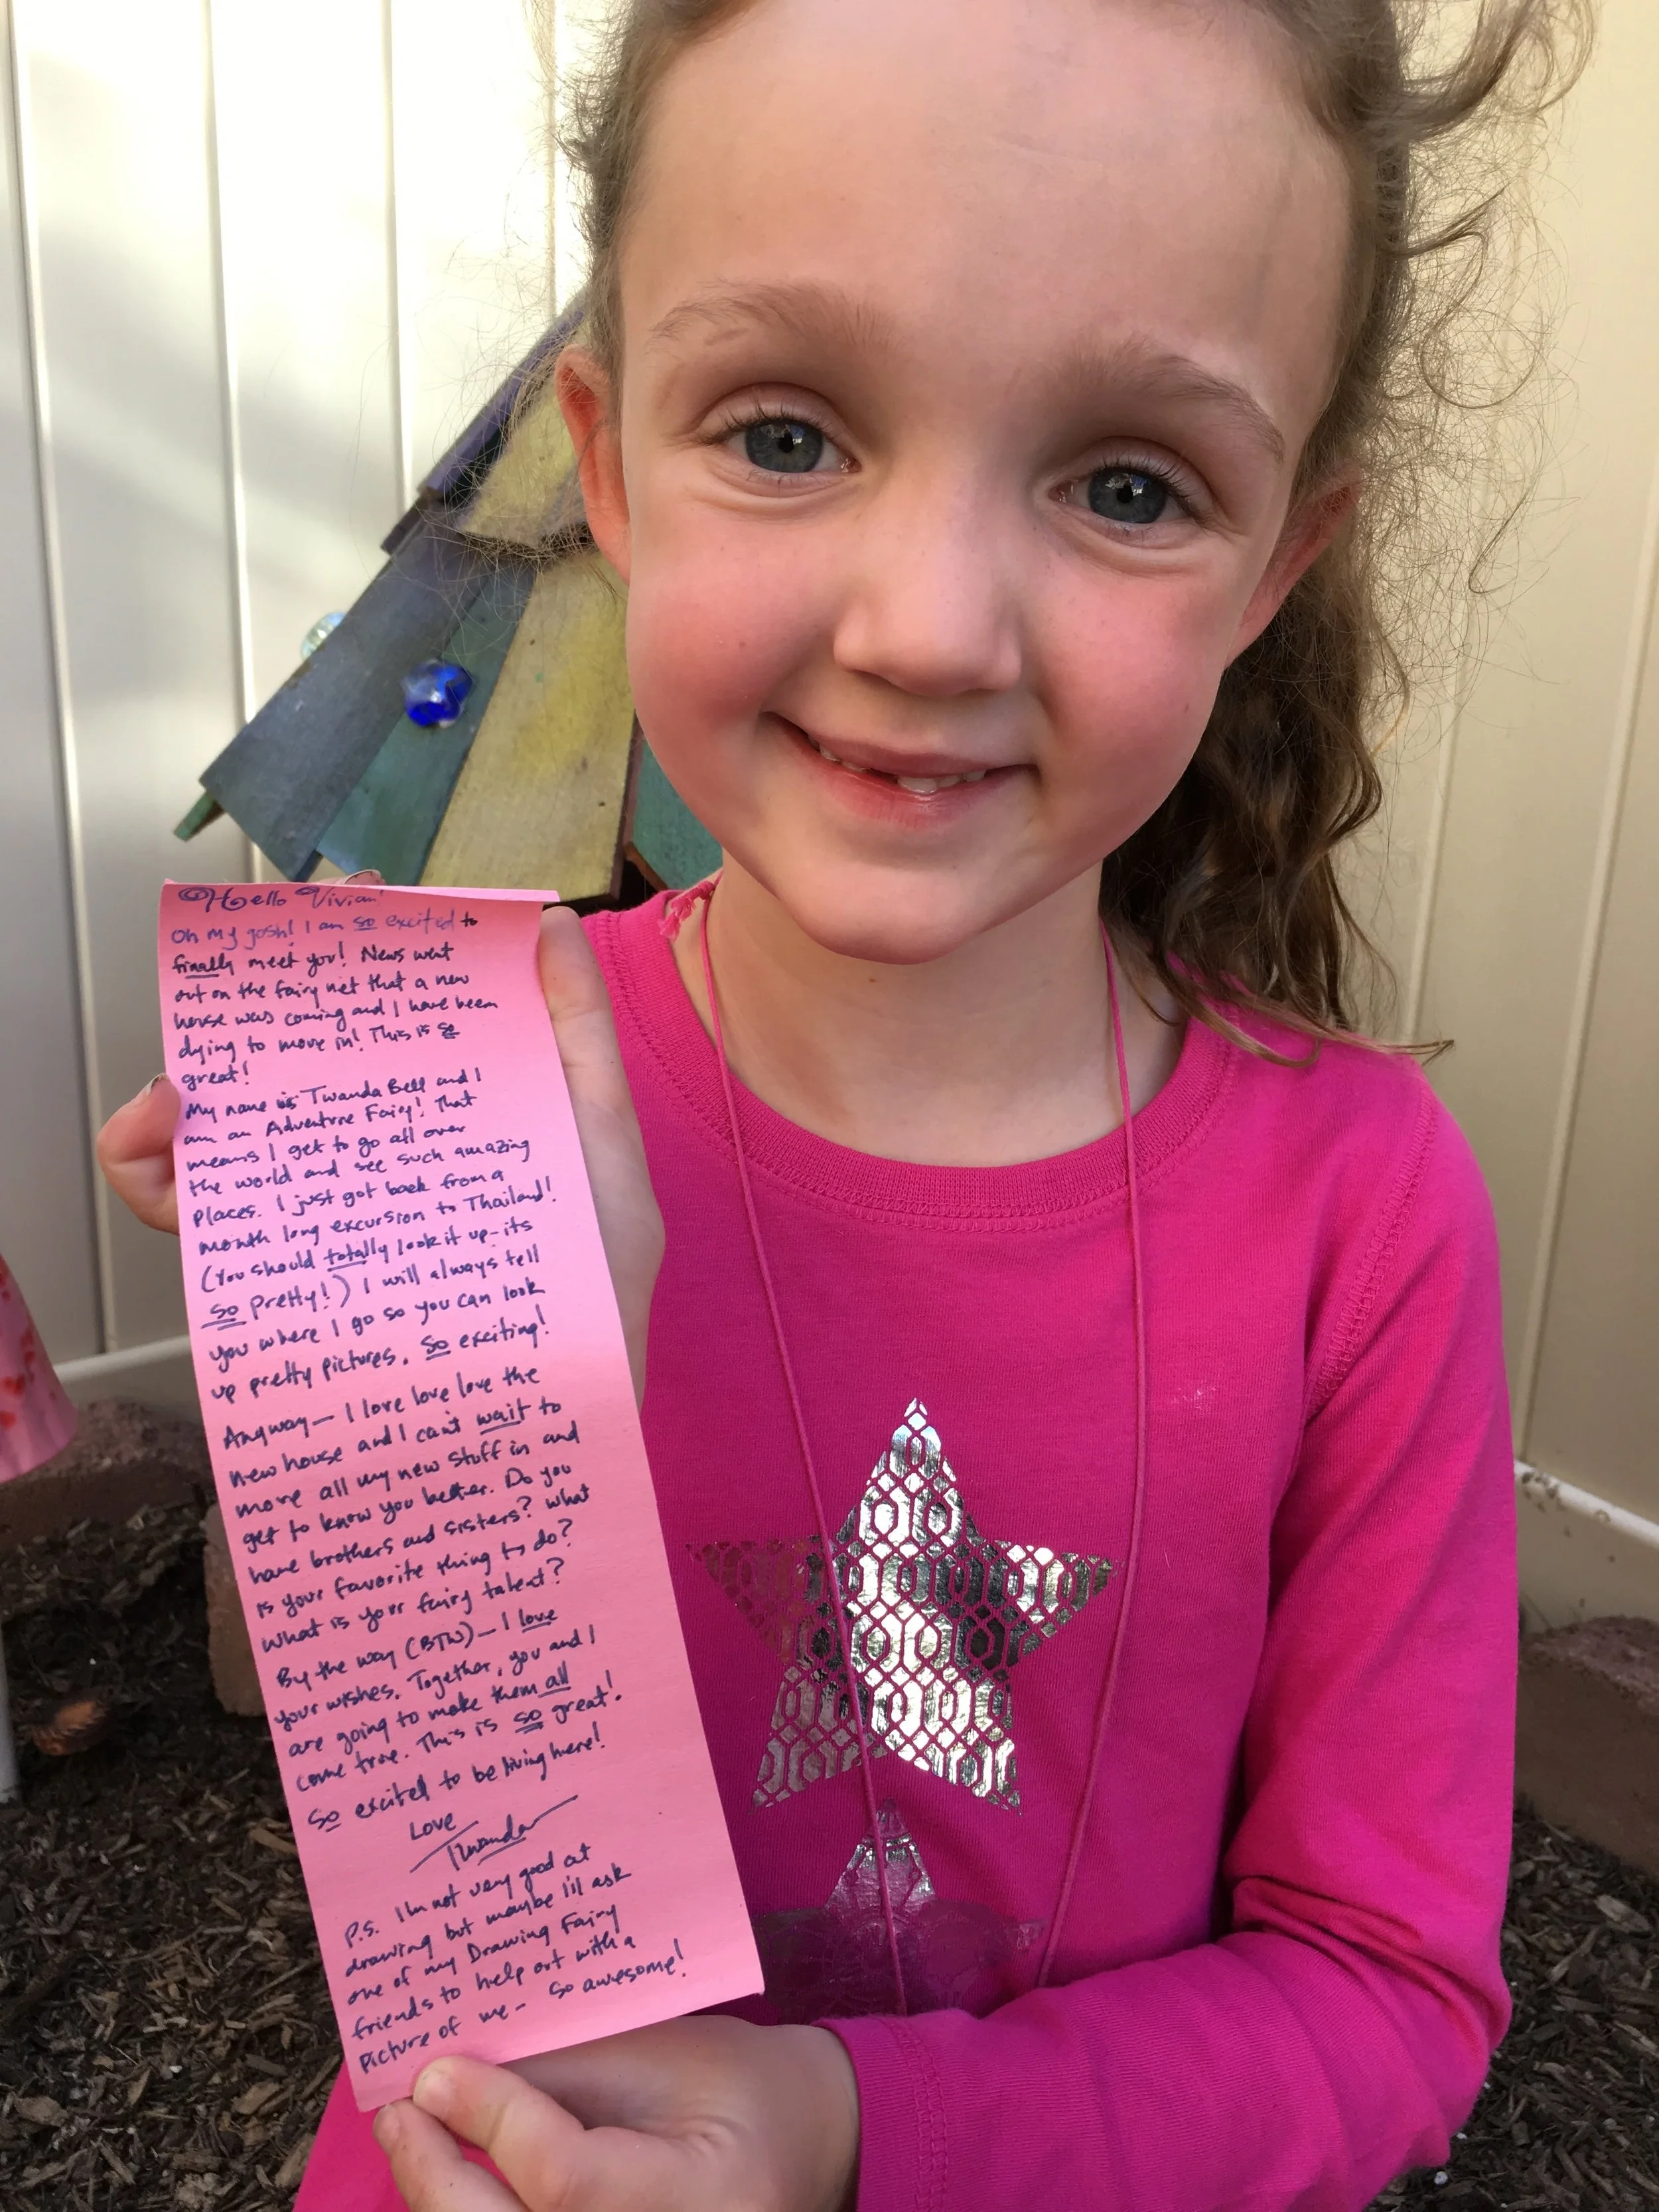 Hello Vivian!
Oh my gosh! I am so excited to
finally meet you! News went
out on the fairy net that a new
house was coming and I have been
dying to move in! This is so
great!
My name is Twanda Bell and I
am an Adventure Fairy! That
means I get to go all over
the world and see such amazing
places. I just got back from a
month long excursion to Thailand!
(You should totally look it up-its
so pretty!) I will always tell
you where I go so you can look
up pretty pictures. So exciting!
Anyway - I love love love the
new house and I can't wait to
move all my new stuff in and
get to know you better. Do you
have brothers and sisters? What
is your favorite thing to do?
What is your fairy talent?
By the way (BTW) - I love
your wishes. Together, you and I
are going to make them all
come true. This is so great!
So excited to be living here!
Love
Twanda
P.S. I'm not very good at
drawing but maybe I'll ask
one of my Drawing Fairy
friends to help out with a
picture of me - so awesome!